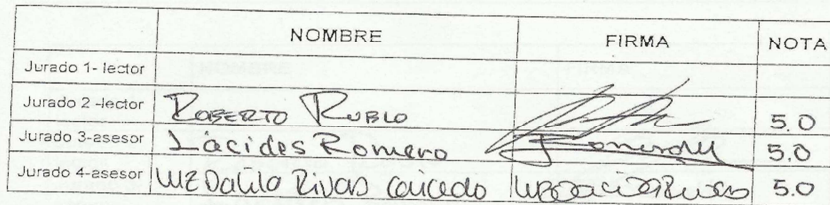 NOMBRE FIRMA NOTA
Jurado 1- lector
Jurado 2 -lector ROBERTO RUBIO 5.0
Jurado 3-asesor Lácides Romero 5.0
Jurado 4-asesor LUZ Dalila Rivas Caicedo 5.0